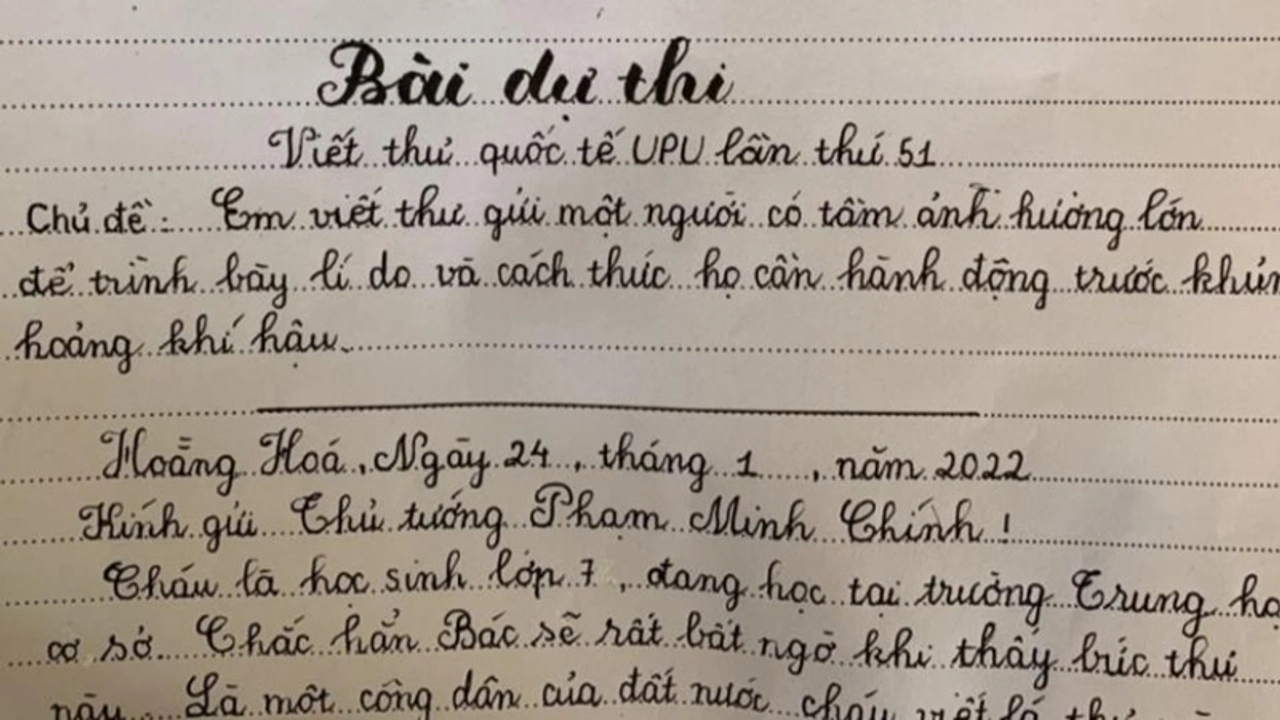 Bài dự thi
Viết thư quốc tế UPU lần thứ 51
Chủ đề: Em viết thư gửi một người có tầm ảnh hưởng lớn
để trình bày lí do và cách thức họ cần hành động trước khủn
hoảng khí hậu.
Hoằng Hoá, Ngày 24, tháng 1, năm 2022
Kính gửi Thủ tướng Phạm Minh Chính!
Cháu là học sinh lớp 7, đang học tại trường Trung họ
cơ sở. Chắc hẳn Bác sẽ rất bất ngờ khi thấy bức thư
này. Là một công dân của đất nước cháu viết lá thư